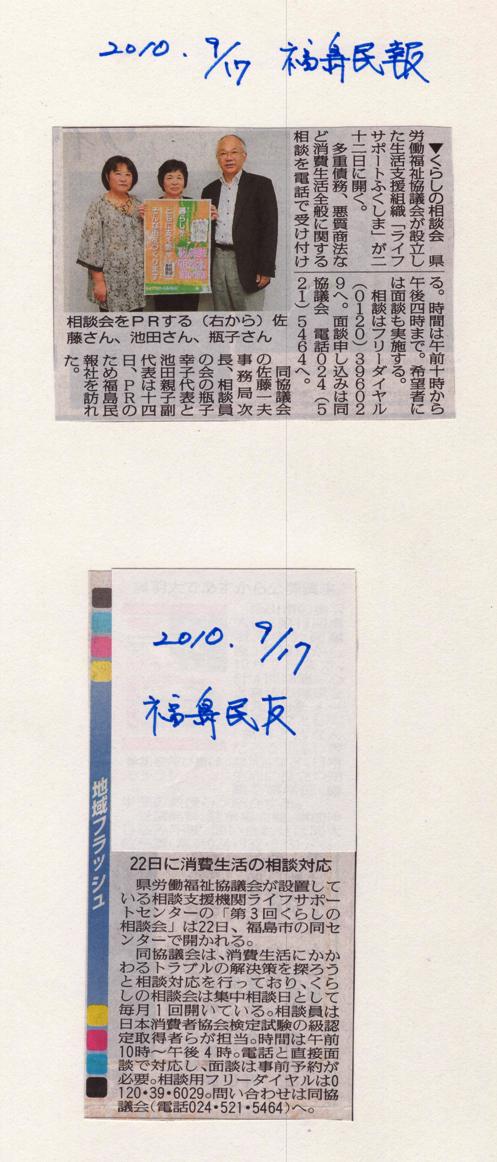 2010. 9/17 福島民報
▼くらしの相談会 県
労働福祉協議会が設立し
た生活支援組織「ライフ
サポートふくしま」が二
十二日に開く。
多重債務、悪質商法な
ど消費生活全般に関する
相談を電話で受け付け
る。時間は午前十時から
午後四時まで。希望者に
は面談も実施する。
相談はフリーダイヤル
(0120)39602
9へ。面談申し込みは同
協議会 電話024(5
21)5464へ。
同協議会
の佐藤一夫
事務局次
長、相談員
の会の瓶子
幸子代表と
池田親子副
代表は十四
日、PRの
ため福島民
報社を訪れ
た。
相談会をPRする(右から)佐
藤さん、池田さん、瓶子さん
2010. 9/17
福島民友
地域フラッシュ
22日に消費生活の相談対応
県労働福祉協議会が設置して
いる相談支援機関ライフサポー
トセンターの「第3回くらしの
相談会」は22日、福島市の同セ
ンターで開かれる。
同協議会は、消費生活にかか
わるトラブルの解決策を探ろう
と相談対応を行っており、くら
しの相談会は集中相談日として
毎月1回開いている。相談員は
日本消費者協会検定試験の級認
定取得者らが担当。時間は午前
10時〜午後4時。電話と直接面
談で対応し、面談は事前予約が
必要。相談用フリーダイヤルは0
120・39・6029。問い合わせは同協
議会(電話024・521・5464)へ。